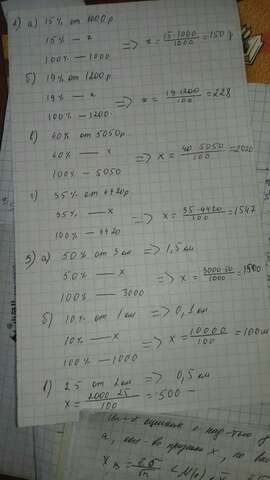 2) а) 15% от 1000 р
15% — x
100% — 1000
=> x = 15·1000/1000 = 150 р
б) 19% от 1200 р
19% — x
100% — 1200
=> x = 19·1200/100 = 228
в) 40% от 5050 р
40% — x
100% — 5050
=> x = 40·5050/100 = 2020
г) 35% от 4420 р
35% — x
100% — 4420
=> x = 35·4420/100 = 1547
3) а) 50% от 3 км => 1,5 км
50% — x
100% — 3000
=> x = 3000·50/100 = 1500
б) 10% от 1 км => 0,1 км
10% — x
100% — 1000
=> x = 10000/100 = 100 м
в) 25 от 2 км => 0,5 км
x = 2000·25/100 = 500